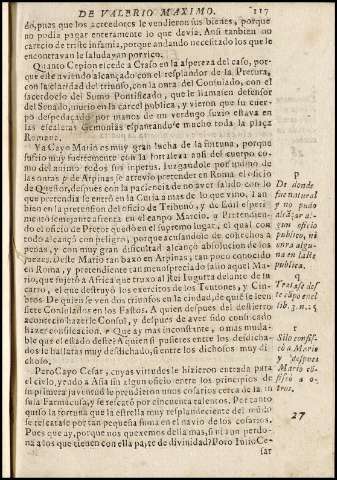 DE VALERIO MAXIMO. 217
do, pues que los acreedores le vendieron sus bienes, porque
no podia pagar enteramente lo que devia. Ansi tambien no
carecio de triste infamia, porque andando necesitado los que le
encontravan le saludavan por rico.
Quanto Cepion excede a Craso en la aspereza del caso, porque
este aviendo alcançado con el resplandor de la Pretura,
con la claridad del triunfo, con la onra del Consulado, con el
sacerdocio del Sumo Pontificado, que le llamasen defensor
del Senado, murio en la carcel publica, y vieron que su cuerpo
despedaçado por manos de un verdugo suzio estava en
las escaleras Gemonias espantandose mucho toda la plaça
Romana.
Ya Cayo Mario es muy gran lucha de la fortuna, porque
sufrio muy fuertemente con la fortaleza ansi del cuerpo como
del animo todos sus impetus. Iuzgandole por indino de
las onras p de Arpinas se atrevio pretender en Roma el oficio
de Questor, despues con la paciencia de no aver salido con lo
que pretendia se entrò en la Curia a mas de lo que vino. Tambien
en la pretension del oficio de Tribuno, y de Edil esperimentò
semejante afrenta en el canpo Marcio. Pretendiendo
el oficio de Pretor quedò en el supremo lugar, el qual con
todo alcançò con peligro, porque acusandole de cohechos a
penas, y con muy gran dificultad alcançò absolucion de los
juezes. Deste Mario tan baxo en Arpinas, tan poco conocido
en Roma, y pretendiente tan menospreciado salio aquel Mario,
que sujetò a Africa que traxo al Rei Iugurta delante de su
carro, el que destruyò los exercitos de los Teutones, y Cinbros
De quien se ven dos triunfos en la ciudad, de quiẽ se leen
siete Consulados en los Fastos. A quien despues del destierro
acontecio hazerle Consul, y despues de aver sido confiscado
hazer confiscacion. r Que ay mas inconstante, o mas mudable
que el estado deste? A quien si pusieres entre los desdichados
le hallaras muy desdichado, si entre los dichosos muy dichoso.
Pero Cayo Cesar, cuyas virtudes le hizieron entrada para
el cielo, yendo a Asia sin algun oficio entre los principios de
su primera juventud le prendieron unos cosarios cerca de la insula
Farmacusa, y se rescatò por cincuenta talentos. Por tanto
quiso la fortuna que la estrella muy resplandeciente del mũdo
se rescatase por tan pequeña suma en el navio de los cosarios.
Pues que ay, porque nos quexemos della mas, si ni aun perdona
a los que tienen con ella parte de divinidad? Pero Iulio Cesar
P
De donde
fue natural
y no pudo
alcãçar algun
oficio
publico, ni
onra alguna
en la Republica.
q
Trata se deste
capo en el
lib. 3. n. 5
r
Silo confiscò
a Mario
y despues
Mario cõfiscò
a otros.
27